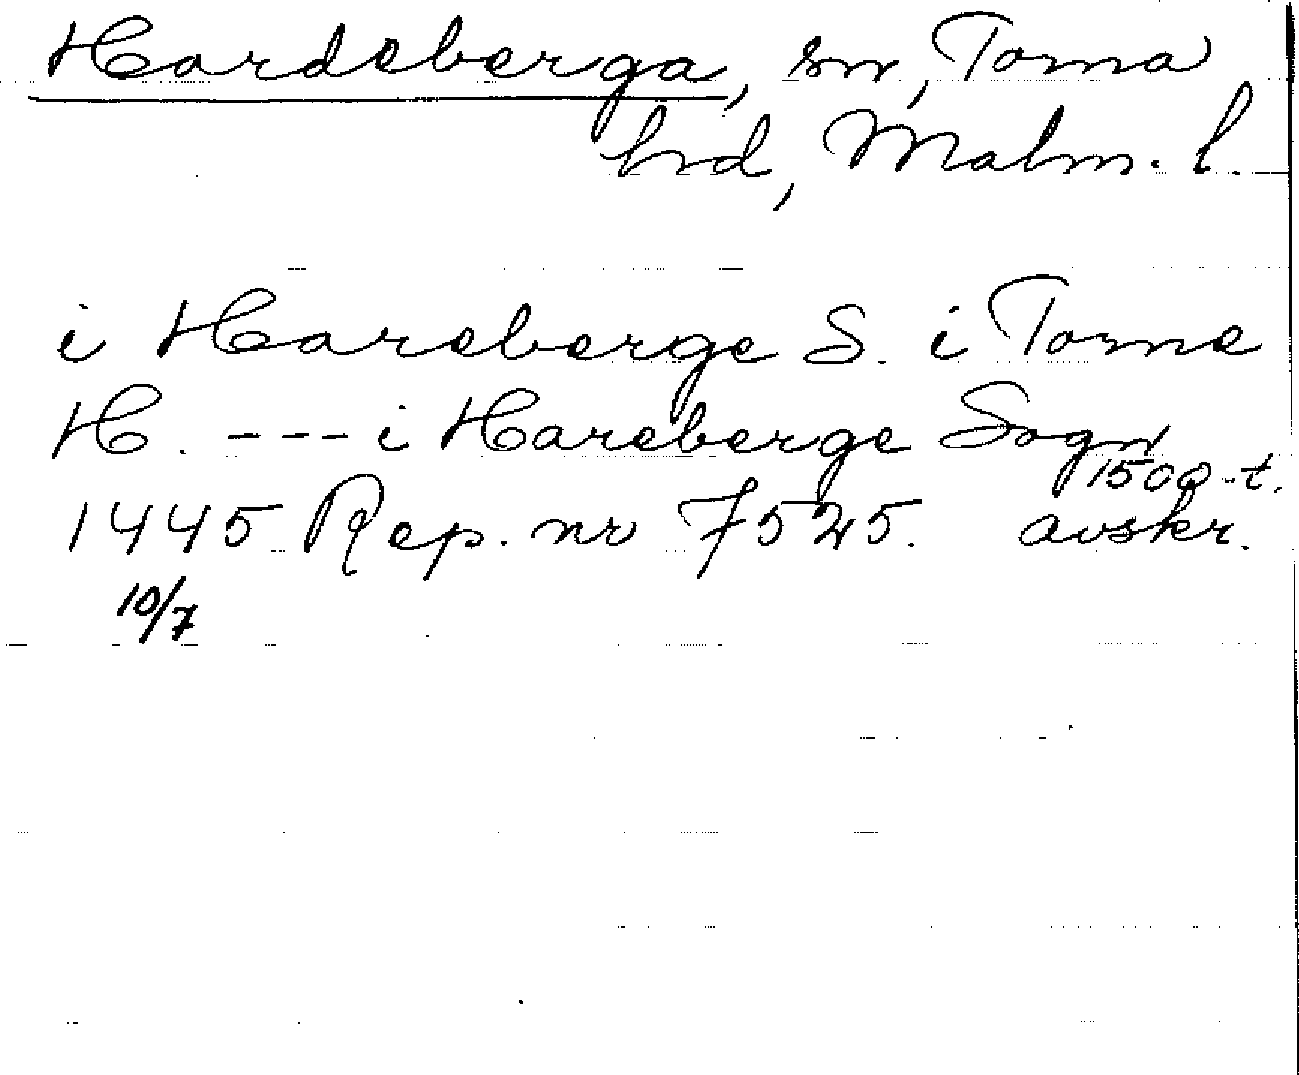 Hardeberga, sn, Torna
hrd, Malm. l.
i Hareberge S. i Torne
H. --- i Hareberge Sogn
1500-t.
1445 Rep. nr 7525. avskr.
10/7